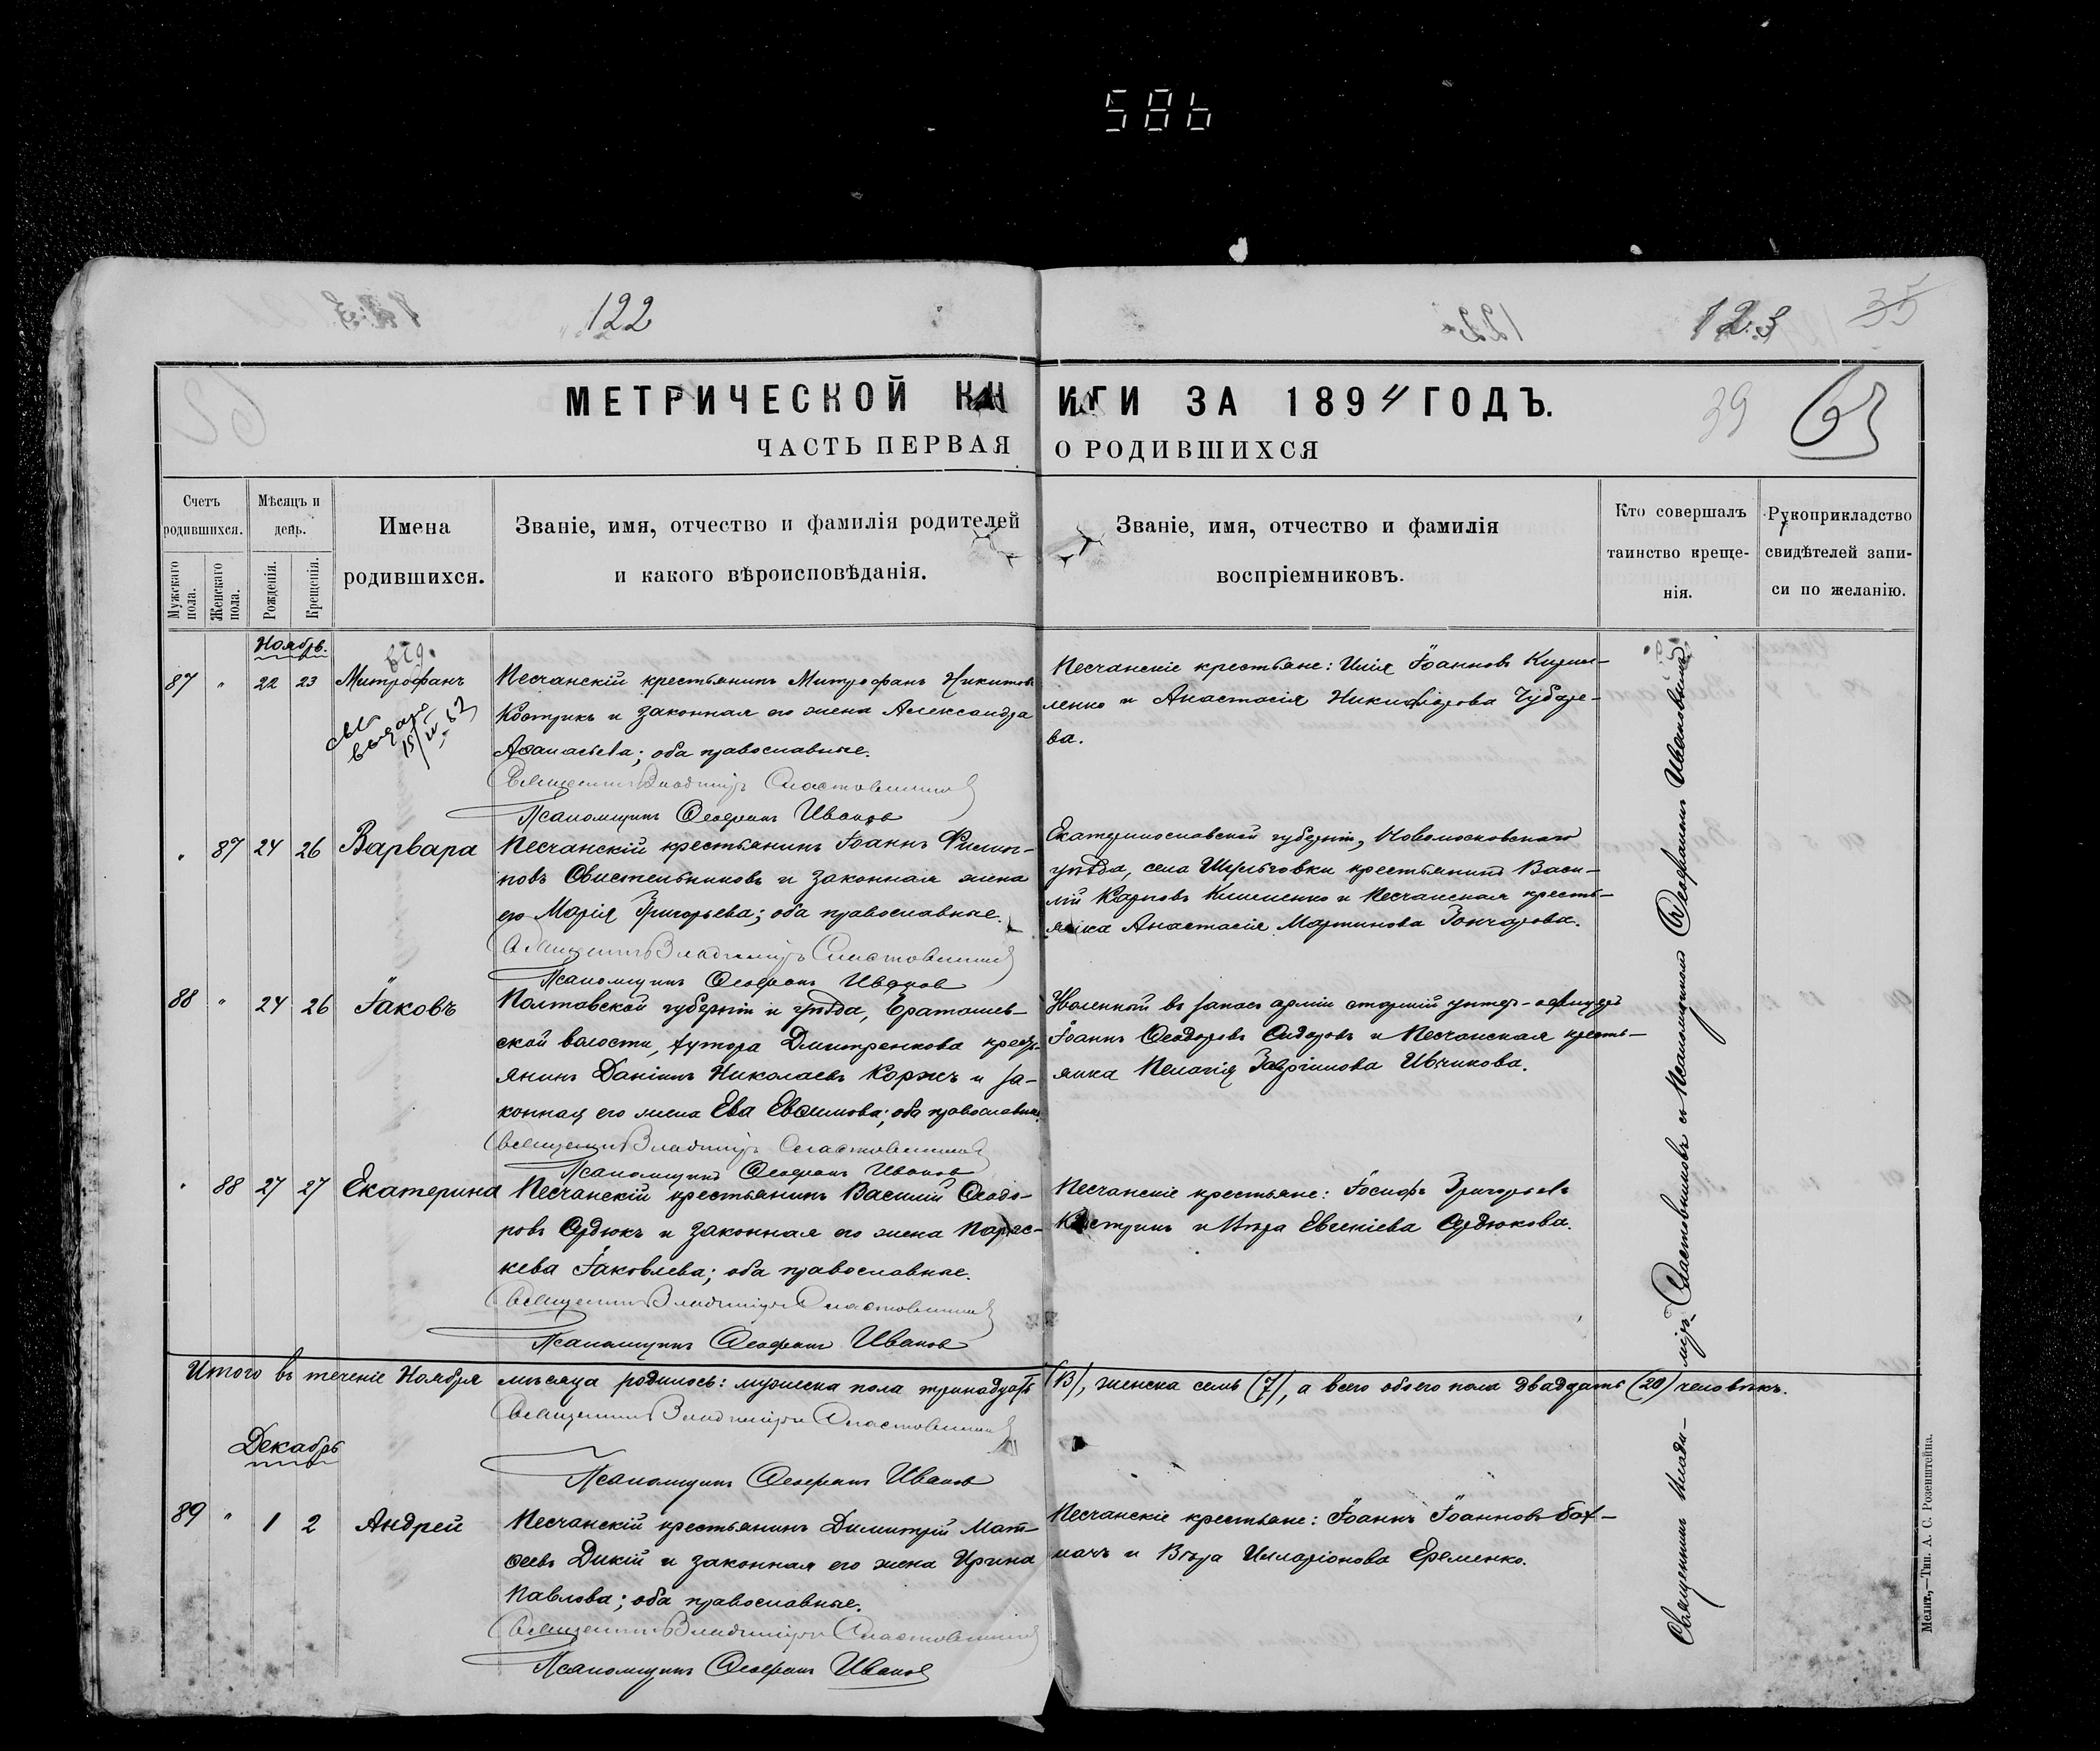 586
122
123
35
МЕТРИЧЕСКОЙ КНИГИ ЗА 1894 ГОДЪ.
39
63
ЧАСТЬ ПЕРВАЯ О РОДИВШИХСЯ
Счетъ родившихся.
Мужескаго пола.
Женскаго пола.
Мѣсяцъ и день.
Рожденія.
Крещенія.
Имена родившихся.
Званіе, имя, отчество и фамилія родителей
и какого вѣроисповѣданія.
Званіе, имя, отчество и фамилія
воспріемниковъ.
Кто совершалъ
таинство креще-
нія.
Рукоприкладство
свидѣтелей запи-
си по желанію.
Ноябрь.
87 " 22 23 Митрофанъ
Песчанскій крестьянинъ Митрофанъ Никитовъ
Кострикъ и законная его жена Александра
Аѳанасьева; оба православные.
Священникъ Владиміръ Сластовниковъ
Псаломщикъ Ѳеофанъ Ивановъ
Песчанскіе крестьяне: Илія Іоанновъ Кирил-
ленко и Анастасія Никифорова Чубаре-
ва.
" 87 24 26 Варвара
Песчанскій крестьянинъ Іоаннъ Филип-
повъ Свистельниковъ и законная жена
его Марія Григорьева; оба православные.
Священникъ Владиміръ Сластовниковъ
Псаломщикъ Ѳеофанъ Ивановъ
Екатеринославской губерніи, Новомосковскаго
уѣзда, села Шульговки крестьянинъ Васи-
лій Карповъ Клименко и Песчанская кресть-
янка Анастасія Мартинова Гончарова.
88 " 24 26 Іаковъ
Полтавской губерніи и уѣзда,
ской волости, хутора Дмитренкова кресть-
янинъ Даніилъ Николаевъ Коржъ и за-
конная его жена Ева Евѳимова; оба православные.
Священникъ Владиміръ Сластовниковъ
Псаломщикъ Ѳеофанъ Ивановъ
Уволенный въ запасъ арміи старшій унтер-офицеръ
Іоаннъ Ѳеодоровъ Сидоровъ и Песчанская кресть-
янка Пелагія Ивчикова.
" 88 27 27 Екатерина
Песчанскій крестьянинъ Василій Ѳеодо-
ровъ Сердюкъ и законная его жена Парас-
кева Іаковлева; оба православные.
Священникъ Владиміръ Сластовниковъ
Псаломщикъ Ѳеофанъ Ивановъ
Песчанскіе крестьяне: Іосифъ Григорьевъ
Кострикъ и Вѣра Евгеніева Сердюкова.
Итого въ теченіе Ноября мѣсяца родилось: мужеска пола тринадцать (13), женска семь (7), а всего обоего пола двадцать (20) человѣкъ.
Священникъ Владиміръ Сластовниковъ
Псаломщикъ Ѳеофанъ Ивановъ
Декабрь
89 " 1 2 Андрей
Песчанскій крестьянинъ Димитрій Мат-
ѳеевъ Дикій и законная его жена Ирина
Павлова; оба православные.
Священникъ Владиміръ Сластовниковъ
Псаломщикъ Ѳеофанъ Ивановъ
Песчанскіе крестьяне: Іоаннъ Іоанновъ Бах-
мачъ и Вѣра Илларіонова Еременко.
Священникъ Влади-
міръ Сластовниковъ и Псаломщикъ Ѳеофанъ Ивановъ
Мелит.,—Тип. А. С. Розенштейна.